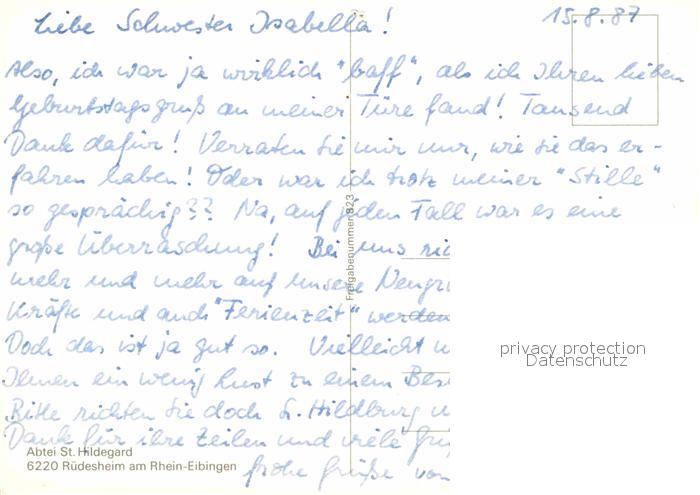 15.8.87
Liebe Schwester Isabella!
Also, ich war ja wirklich "baff", als ich Ihren lieben
Geburtstagsgruß an meiner Türe fand! Tausend
Dank dafür! Verraten Sie mir nur, wie Sie das er-
fahren haben! Oder war ich trotz meiner "Stille"
so gesprächig?? Na, auf jeden Fall war es eine
große Überraschung! Bei uns ric
mehr und mehr auf unsere Neugr
Kräfte und auch "Ferienzeit" werden
Doch das ist ja gut so. Vielleicht w
Ihnen ein wenig Lust zu einem Bes
Bitte richten Sie doch S. Hildburg u
Dank für ihre Zeilen und viele Grü
frohe Grüße von
Abtei St. Hildegard
6220 Rüdesheim am Rhein-Eibingen
Freigabenummer 823
privacy protection
Datenschutz